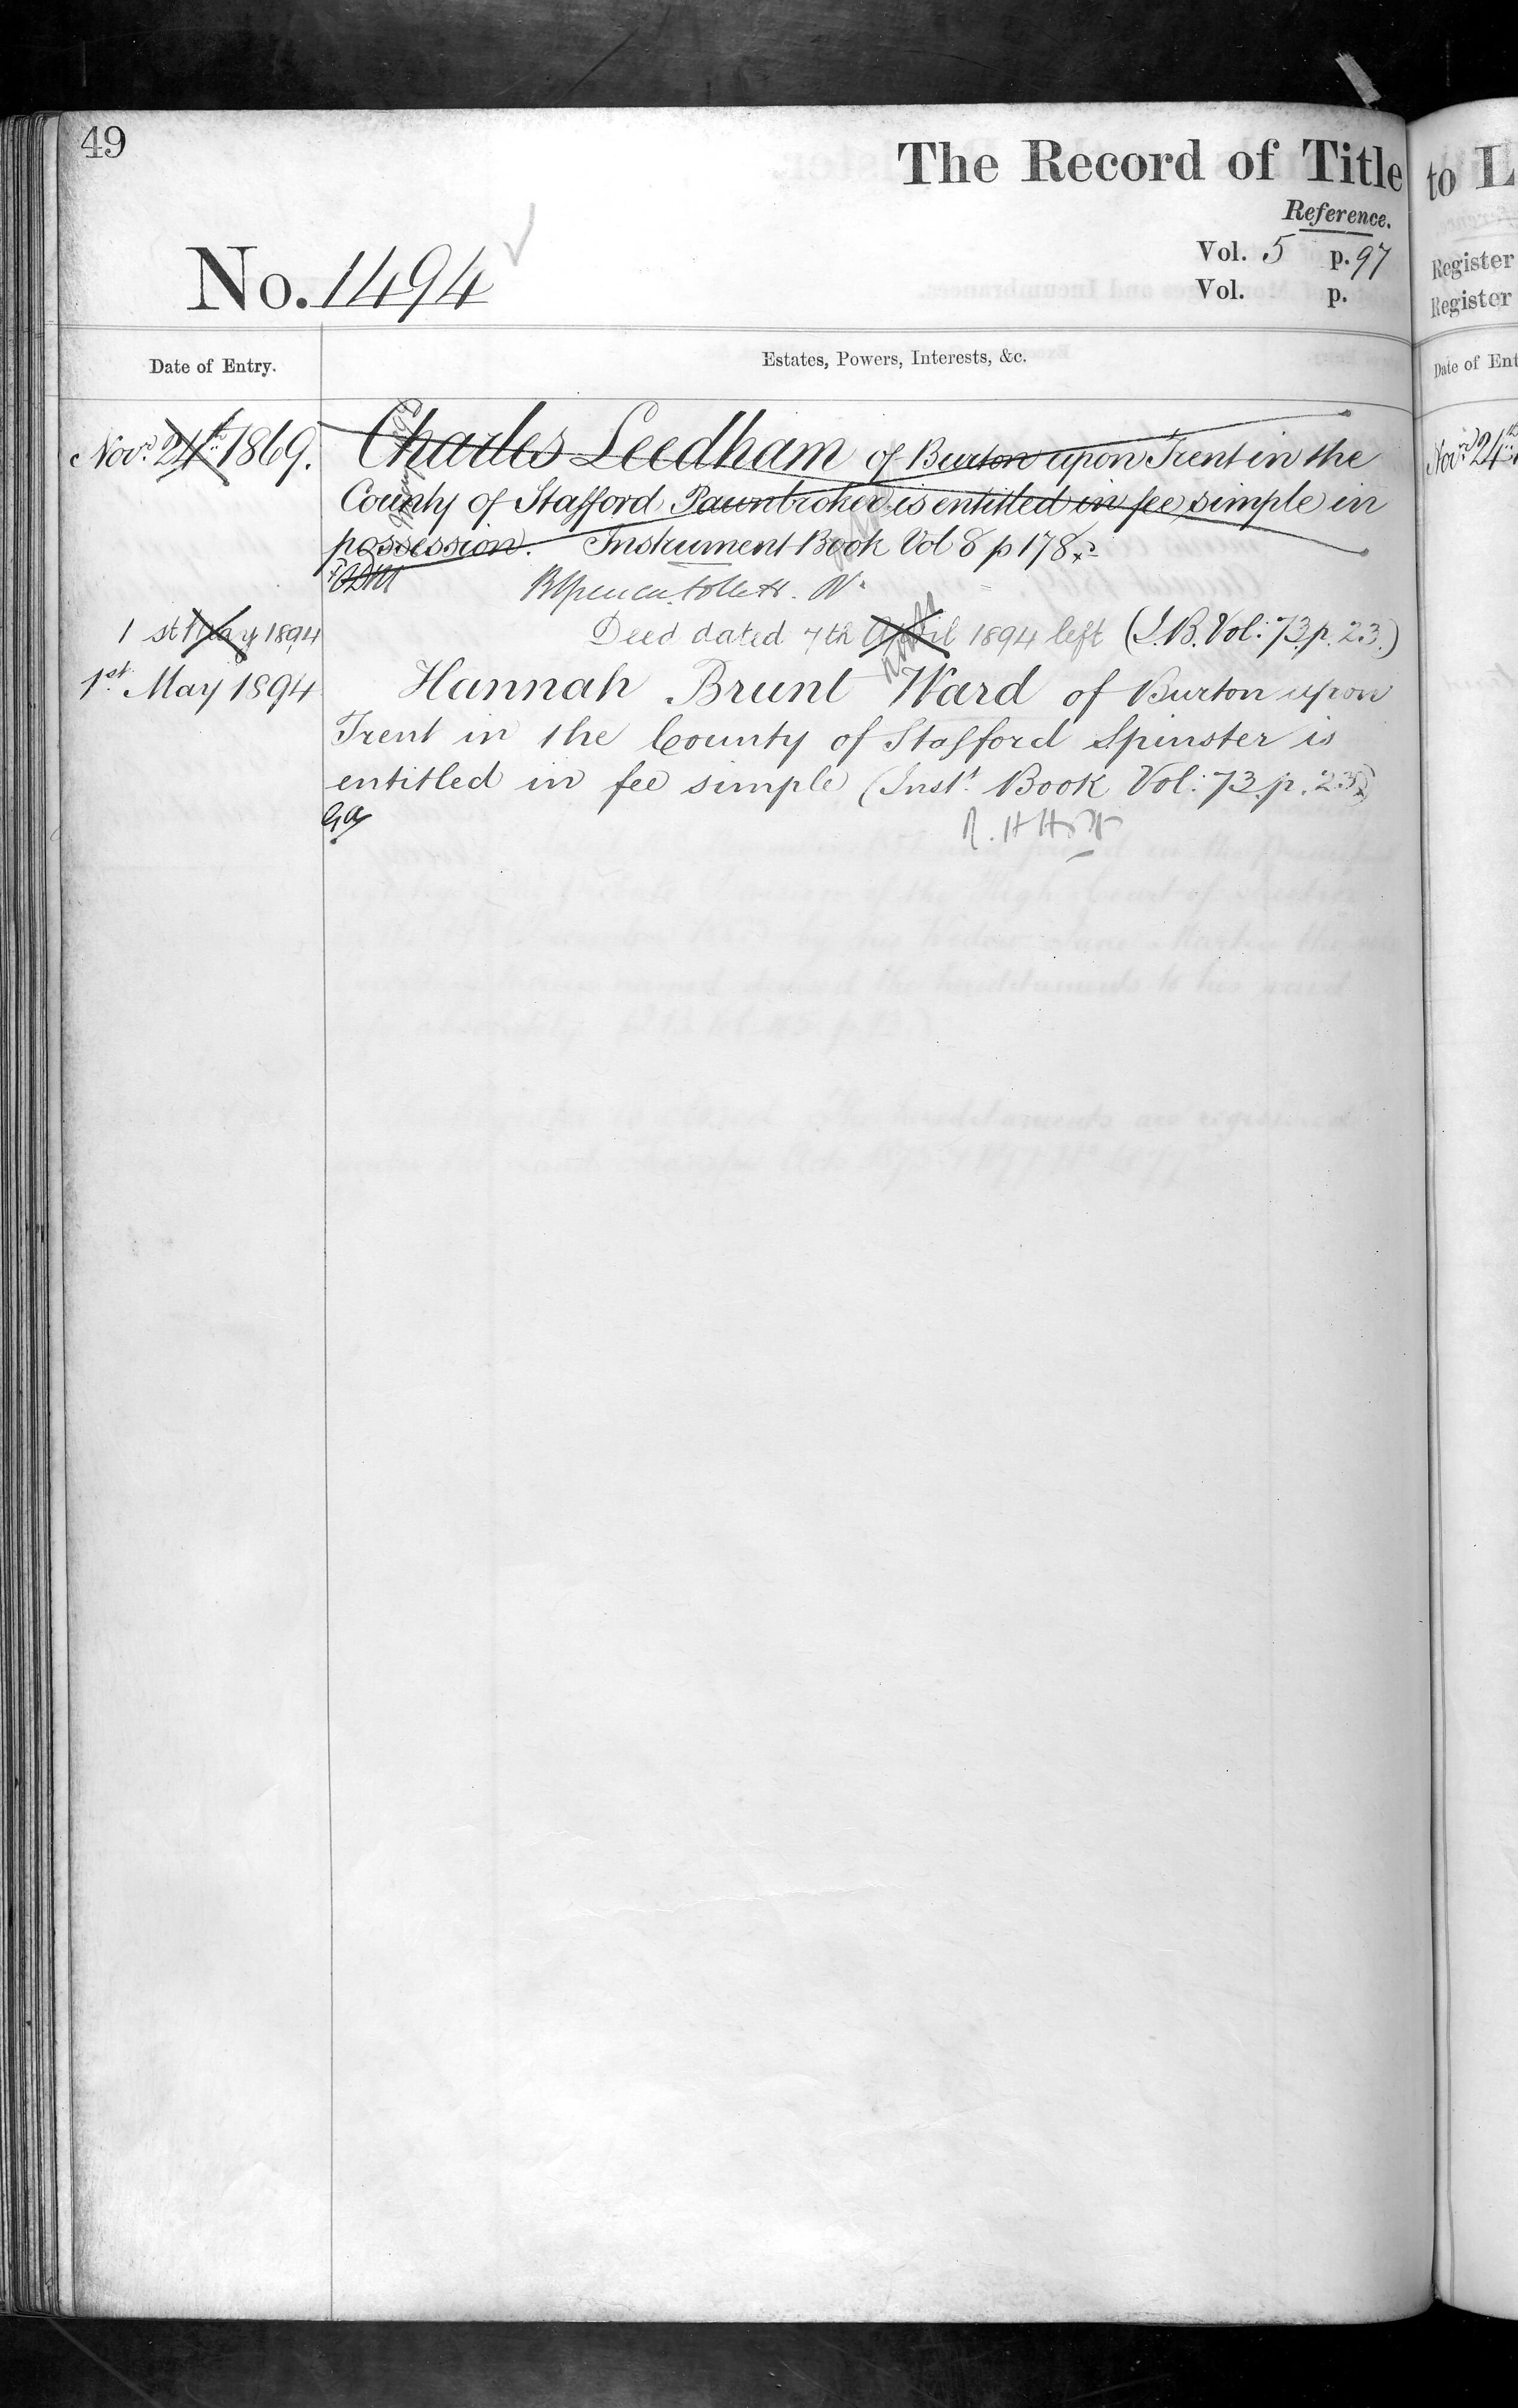 49
The Record of Title
to L
Reference.
No. 1494
Vol. 5 p. 97
Vol. p.
Register
Register
Date of Entry.
Estates, Powers, Interests, &c.
Date of Ent
Novr. 24th 1869.
Charles Leedham of Burton upon Trent in the
County of Stafford Pawnbroker is entitled in fee simple in
possession. Instrument Book Vol 8 p 178.
Novr 24th
1st May 1894
Deed dated 7th April 1894 left (I.B. Vol: 73. p. 23.)
1st. May 1894
Hannah Brunt Ward of Burton upon
Trent in the County of Stafford Spinster is
entitled in fee simple (Inst. Book Vol: 73. p. 23)